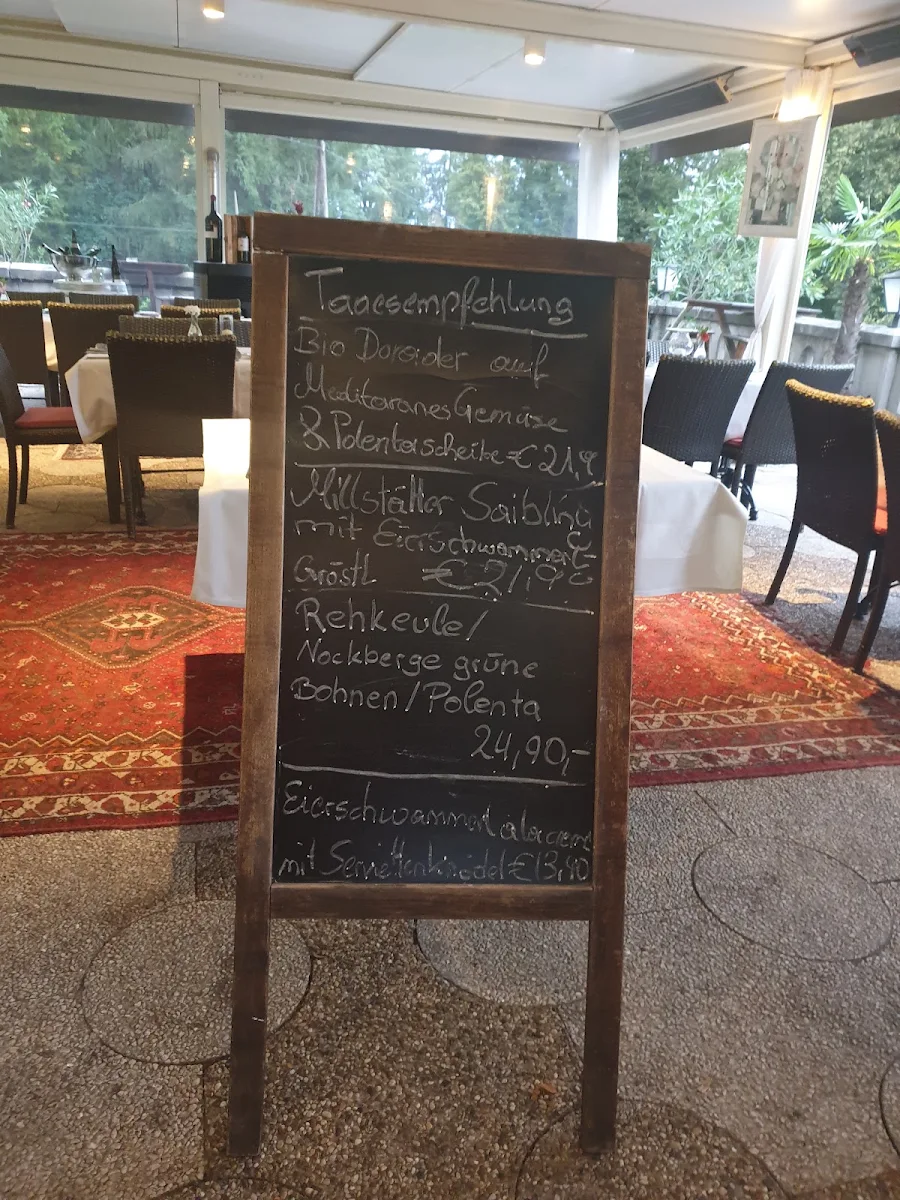 Tagesempfehlung
Bio Doraider auf
Meditaranes Gemüse
& Polentascheibe € 21,9
Millstätter Saibling
mit Eierschwammerl-
Gröstl € 21,90
Rehkeule/
Nockberge grüne
Bohnen/Polenta
24,90,-
Eierschwammerl a la creme
mit Serviettenknödel € 13,40